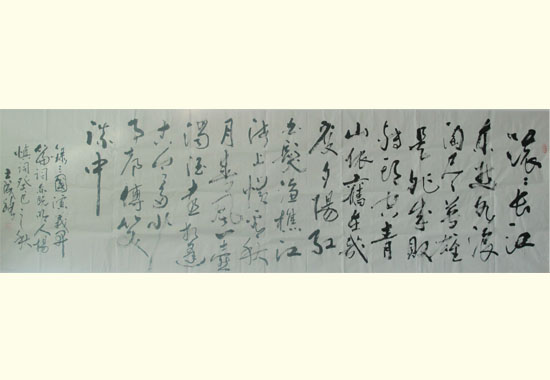 滚〻长江
东逝水浪
淘尽英雄
是非成败
转头空青
山依舊在几
度夕陽红
白髮渔樵江
渚上惯看秋
月春风一壶
浊酒喜相逢
古今多少
事都付笑
谈中
录三国演义开
篇词 人杨
慎词癸巳之秋
王